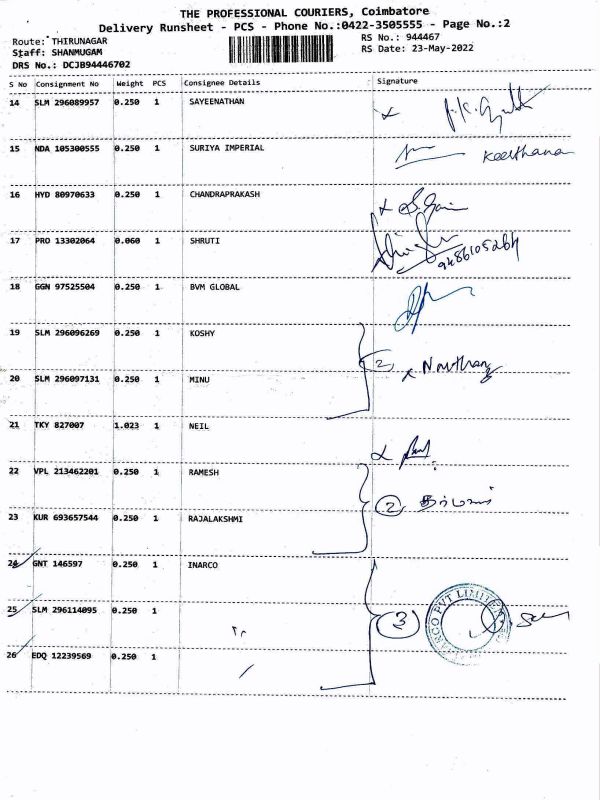 THE PROFESSIONAL COURIERS, Coimbatore
Delivery Runsheet - PCS - Phone No.:0422-3505555 - Page No.:2
Route: THIRUNAGAR RS No.: 944467
Staff: SHANMUGAM RS Date: 23-May-2022
DRS No.: DCJB94446702
S No Consignment No Weight PCS Consignee Details Signature
14 SLM 296089957 0.250 1 SAYEENATHAN
15 NDA 105300555 0.250 1 SURIYA IMPERIAL Keerthana
16 HYD 80970633 0.250 1 CHANDRAPRAKASH
17 PRO 13302064 0.060 1 SHRUTI
18 GGN 97525504 0.250 1 BVM GLOBAL
19 SLM 296096269 0.250 1 KOSHY
2
20 SLM 296097131 0.250 1 MINU
21 TKY 827007 1.023 1 NEIL
22 VPL 213462201 0.250 1 RAMESH
2
23 KUR 693657544 0.250 1 RAJALAKSHMI
24 GNT 146597 0.250 1 INARCO
25 SLM 296114095 0.250 1 3 PVT LIMITED
26 EDQ 12239569 0.250 1